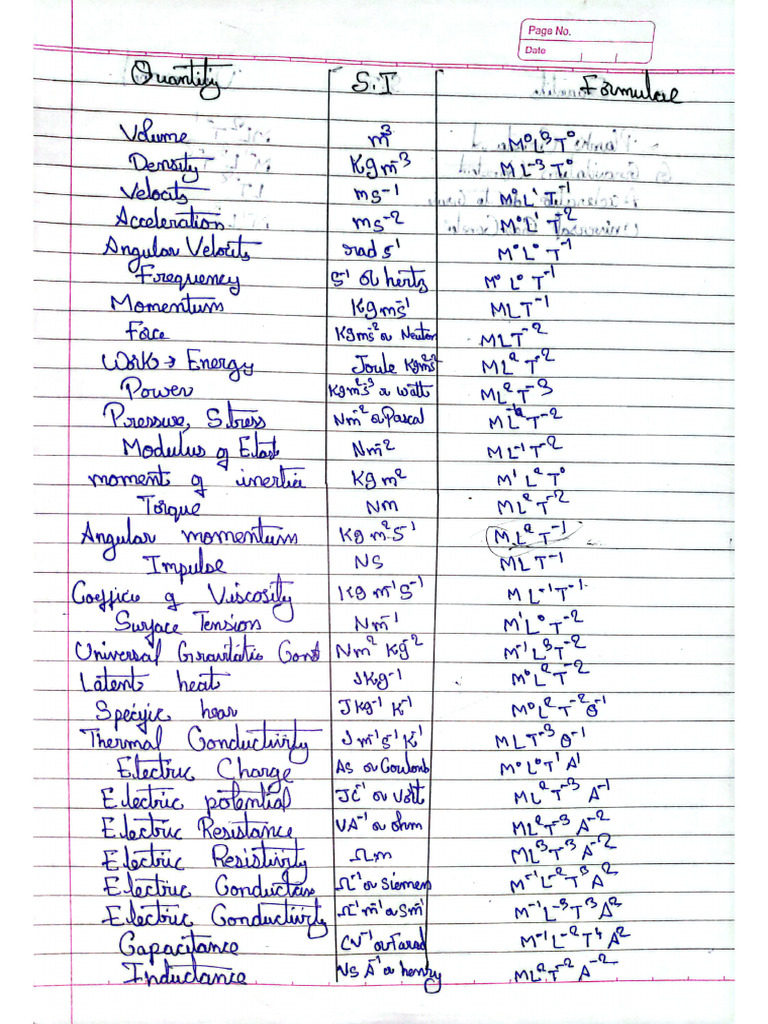 Page No.
Date
Quantity S.I Formulae
Volume m³ M⁰L³T⁰
Density Kgm⁻³ ML⁻³T⁰
Velocity ms⁻¹ M⁰L¹T⁻¹
Acceleration ms⁻² M⁰L¹T⁻²
Angular Velocity rad s⁻¹ M⁰L⁰T⁻¹
Frequency S⁻¹ or hertz M⁰L⁰T⁻¹
Momentum Kgms⁻¹ MLT⁻¹
Force Kgms⁻² or Neuton MLT⁻²
Work → Energy Joule Kgm²s⁻² ML²T⁻²
Power Kgm²s⁻³ or watt ML²T⁻³
Pressure, Stress Nm⁻² or Pascal ML⁻¹T⁻²
Modulus of Elast Nm⁻² ML⁻¹T⁻²
moment of inertia Kgm² M¹L²T⁰
Torque Nm ML²T⁻²
Angular momentum Kgm²S⁻¹ ML²T⁻¹
Impulse NS MLT⁻¹
Coefficie of Viscosity Kg m⁻¹S⁻¹ ML⁻¹T⁻¹
Surface Tension Nm⁻¹ M¹L⁰T⁻²
Universal Gravitatic Const Nm² Kg⁻² M⁻¹L³T⁻²
Latent heat JKg⁻¹ M⁰L²T⁻²
Specific hear JKg⁻¹ K⁻¹ M⁰L²T⁻²θ⁻¹
Thermal Conductivity J m⁻¹S⁻¹K⁻¹ MLT⁻³θ⁻¹
Electric Charge AS or Coulomb M⁰L⁰T¹A¹
Electric potential JC⁻¹ or Volt ML²T⁻³A⁻¹
Electric Resistance VA⁻¹ or ohm ML²T⁻³A⁻²
Electric Resistivity Ω.m ML³T⁻³A⁻²
Electric Conductan Ω⁻¹ or Siemens M⁻¹L⁻²T³A²
Electric Conductivity Ω⁻¹m⁻¹ or Sm⁻¹ M⁻¹L⁻³T³A²
Capacitance CV⁻¹ or Farad M⁻¹L⁻²T⁴A²
Inductance VS A⁻¹ or henry ML²T⁻²A⁻²